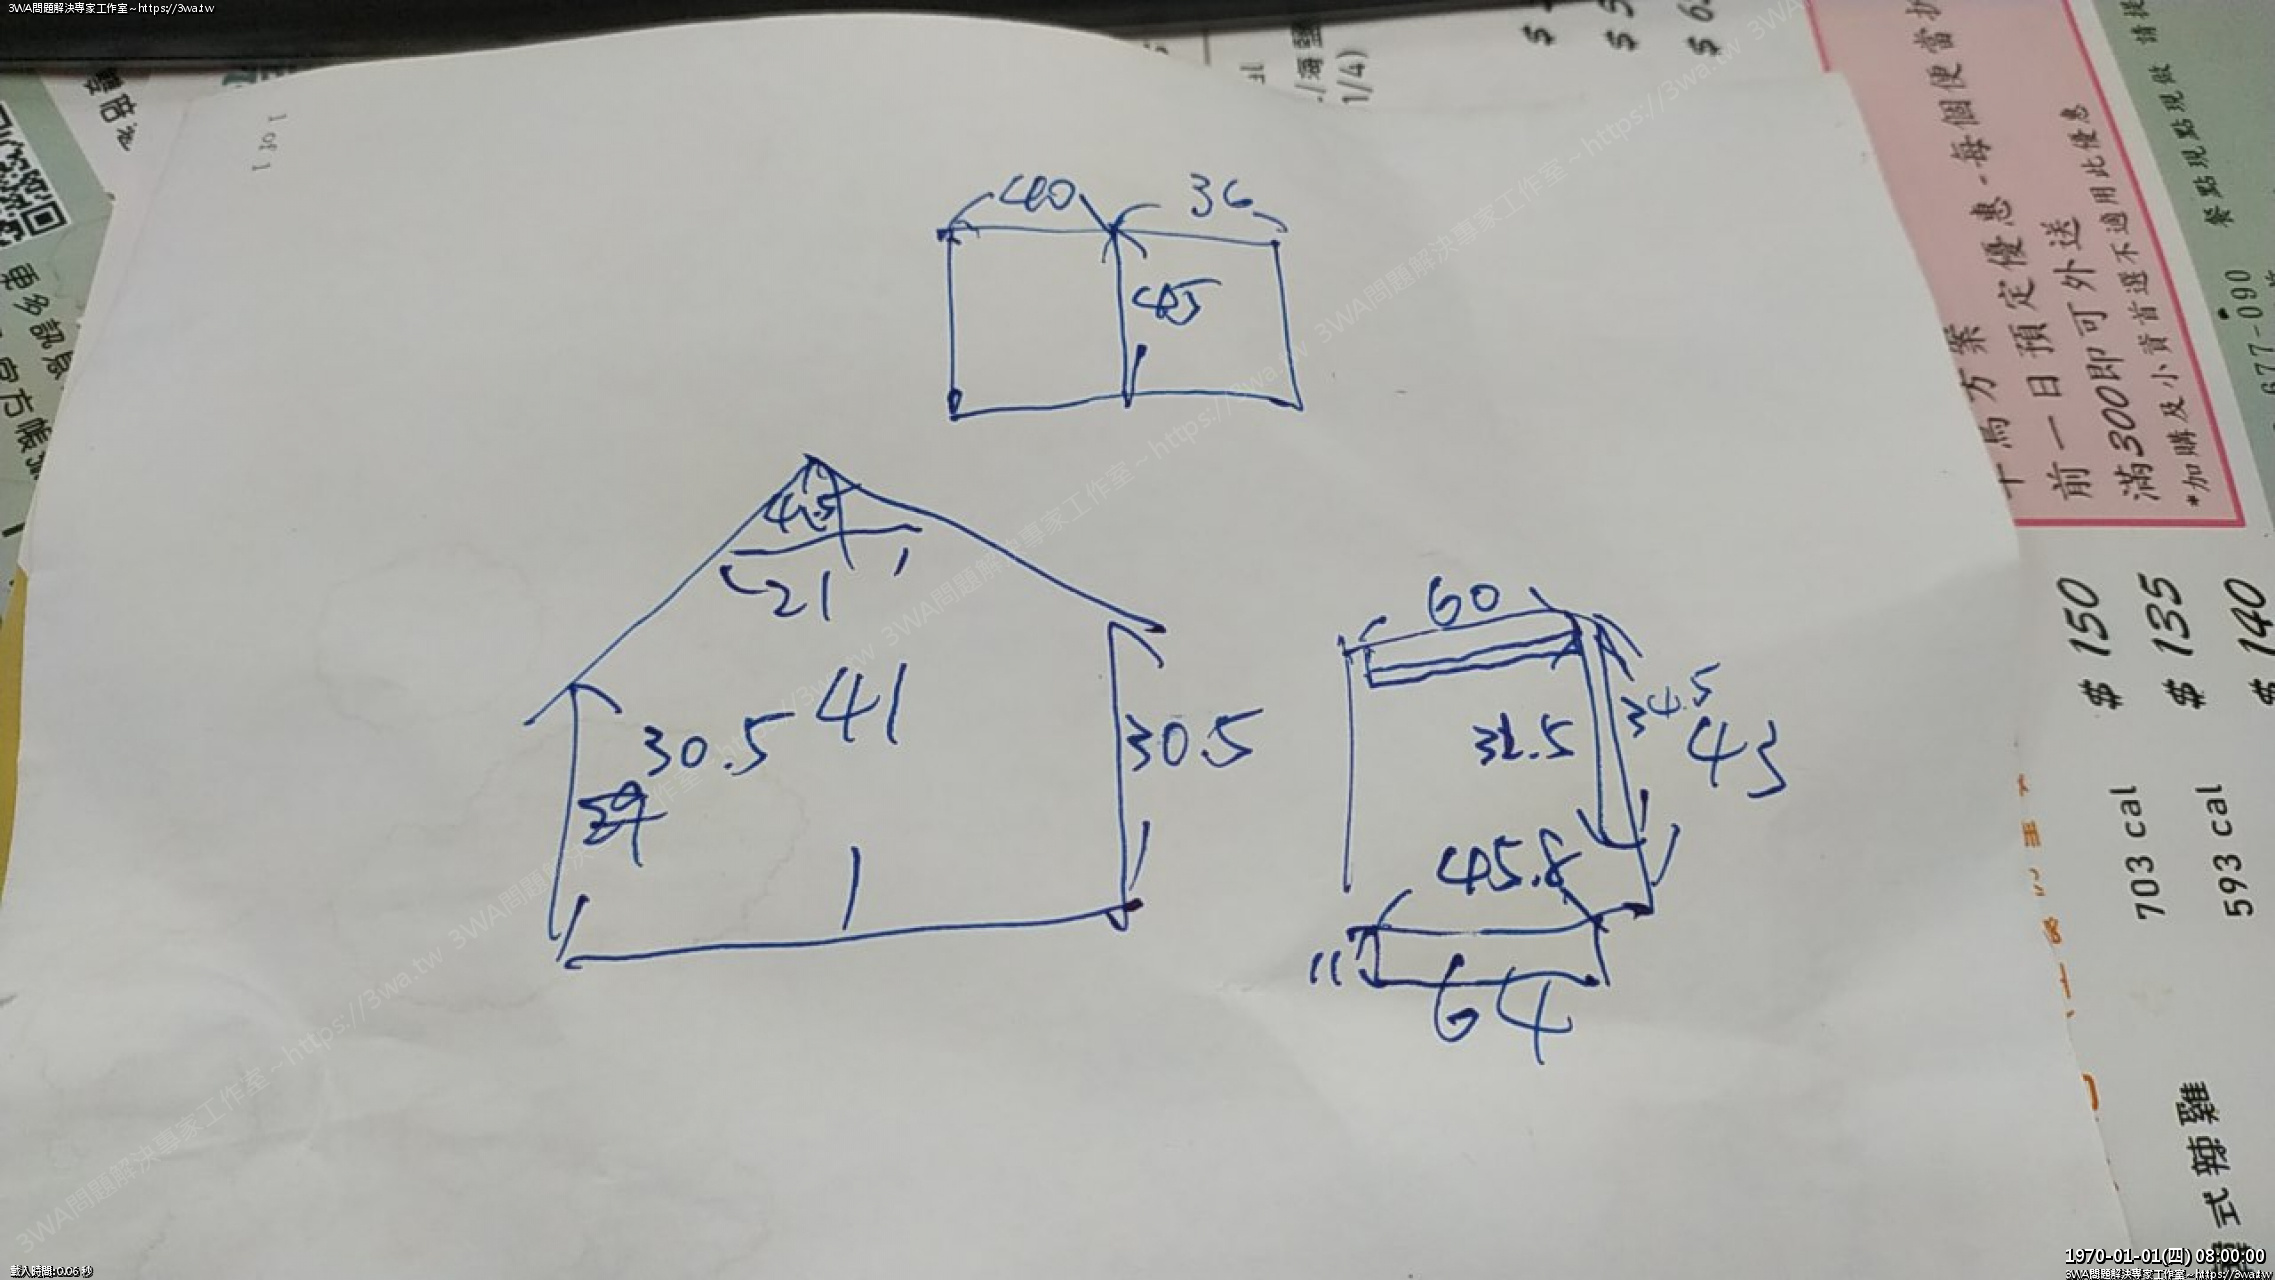 3WA問題解決專家工作室~https://3wa.tw
1 of 1
40
36
45
4.5
21
41
30.5
30.5
60
32.5
34.5
43
45.8
11
64
每個便當
前一日預定優惠
滿300即可外送
*加購及小資首選不適用此優惠
餐點現點現做 請提
677-090
$ 150
$ 135
$ 140
703 cal
593 cal
式辣雞
更多訊息
官方帳
1/4)
載入時間:0.06 秒
1970-01-01(四) 08:00:00
3WA問題解決專家工作室~https://3wa.tw